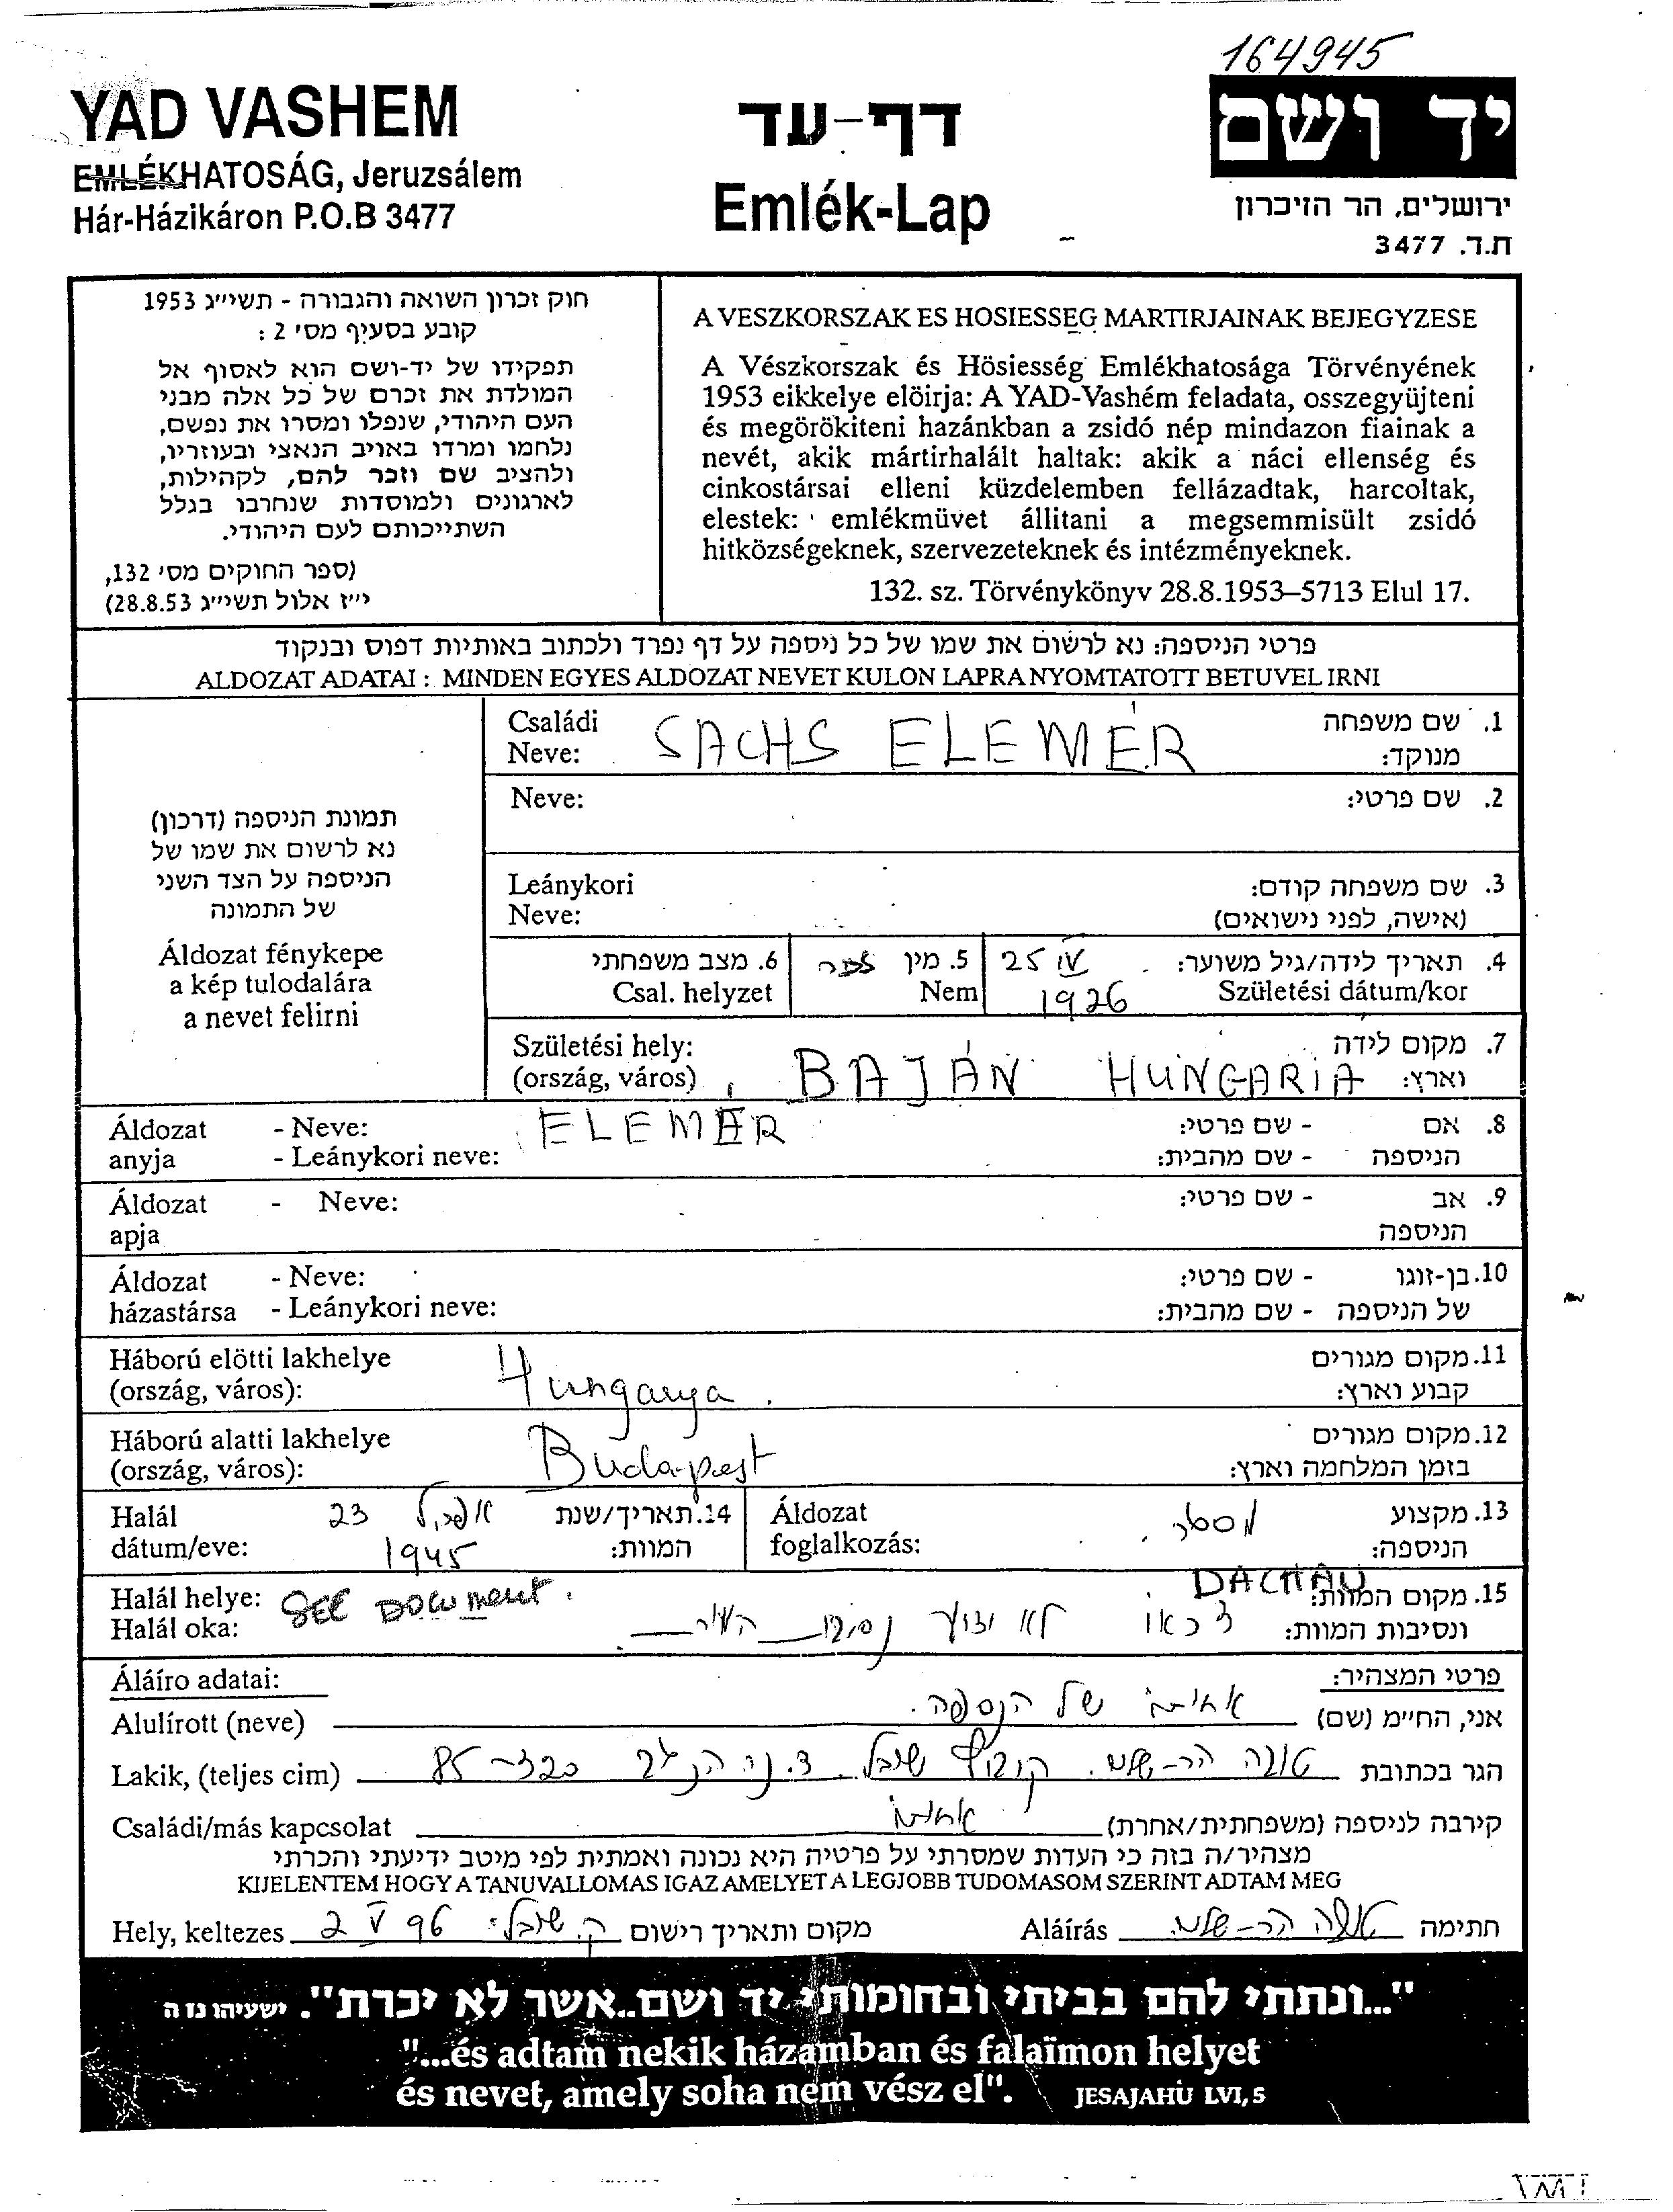 164945
YAD VASHEM
EMLÉKHATOSÁG, Jeruzsálem
Hár-Házikáron P.O.B 3477
דף-עד
Emlék-Lap
יד ושם
ירושלים, הר הזיכרון
ת.ד. 3477
חוק זכרון השואה והגבורה - תשי״ג 1953
קובע בסעיף מס׳ 2 :
תפקידו של יד-ושם הוא לאסוף אל
המולדת את זכרם של כל אלה מבני
העם היהודי, שנפלו ומסרו את נפשם,
נלחמו ומרדו באויב הנאצי ובעוזריו,
ולהציב שם וזכר להם, לקהילות,
לארגונים ולמוסדות שנחרבו בגלל
השתייכותם לעם היהודי.
(ספר החוקים מס׳ 132,
י״ז אלול תשי״ג 28.8.53)
A VESZKORSZAK ES HOSIESSEG MARTIRJAINAK BEJEGYZESE
A Vészkorszak és Hösiesség Emlékhatosága Törvényének
1953 eikkelye elöirja: A YAD-Vashém feladata, osszegyüjteni
és megörökiteni hazánkban a zsidó nép mindazon fiainak a
nevét, akik mártirhalált haltak: akik a náci ellenség és
cinkostársai elleni küzdelemben fellázadtak, harcoltak,
elestek: emlékmüvet állitani a megsemmisült zsidó
hitközségeknek, szervezeteknek és intézményeknek.
132. sz. Törvénykönyv 28.8.1953–5713 Elul 17.
פרטי הניספה: נא לרשום את שמו של כל ניספה על דף נפרד ולכתוב באותיות דפוס ובנקוד
ALDOZAT ADATAI : MINDEN EGYES ALDOZAT NEVET KULON LAPRA NYOMTATOTT BETUVEL IRNI
תמונת הניספה (דרכון)
נא לרשום את שמו של
הניספה על הצד השני
של התמונה
Áldozat fénykepe
a kép tulodalára
a nevet felirni
Családi SACHS ELEMÉR 1. שם משפחה
Neve: מנוקד:
Neve: 2. שם פרטי:
Leánykori 3. שם משפחה קודם:
Neve: (אישה, לפני נישואים)
6. מצב משפחתי 5. מין זכר 25 IV 4. תאריך לידה/גיל משוער:
Csal. helyzet Nem 1926 Születési dátum/kor
Születési hely: 7. מקום לידה
(ország, város) BAJÁN HUNGARIA וארץ:
Áldozat - Neve: ELEMÉR - שם פרטי: 8. אם
anyja - Leánykori neve: - שם מהבית: הניספה
Áldozat - Neve: - שם פרטי: 9. אב
apja הניספה
Áldozat - Neve: - שם פרטי: 10. בן-זוגו
házastársa - Leánykori neve: - שם מהבית: של הניספה
Háború elötti lakhelye Hungarya. 11. מקום מגורים
(ország, város): קבוע וארץ:
Háború alatti lakhelye Budapest 12. מקום מגורים
(ország, város): בזמן המלחמה וארץ:
Halál 23 אפריל 14. תאריך/שנת Áldozat 13. מקצוע
dátum/eve: 1945 המוות: foglalkozás: הניספה:
Halál helye: SEE DOCUMENT. DACHAU 15. מקום המוות:
Halál oka: דכאו לא ידוע ונסיבות המוות:
Áláíro adatai: פרטי המצהיר:
Alulírott (neve) של הנספה. אני, החי״מ (שם)
Lakik, (teljes cim) הר-שלמ. קיבוץ שובל. ד.נ. הנגב 85-320 הגר בכתובת
Családi/más kapcsolat קירבה לניספה (משפחתית/אחרת)
מצהיר/ה בזה כי העדות שמסרתי על פרטיה היא נכונה ואמתית לפי מיטב ידיעתי והכרתי
KIJELENTEM HOGY A TANUVALLOMAS IGAZ AMELYET A LEGJOBB TUDOMASOM SZERINT ADTAM MEG
Hely, keltezes 2 V 96 ק. שובל: מקום ותאריך רישום Aláírás הר-שלמ. חתימה
"...ונתתי להם בביתי ובחומותי יד ושם..אשר לא יכרת". ישעיהו נו ה
"...és adtam nekik házamban és falaïmon helyet
és nevet, amely soha nem vész el". JESAJAHU LVI, 5